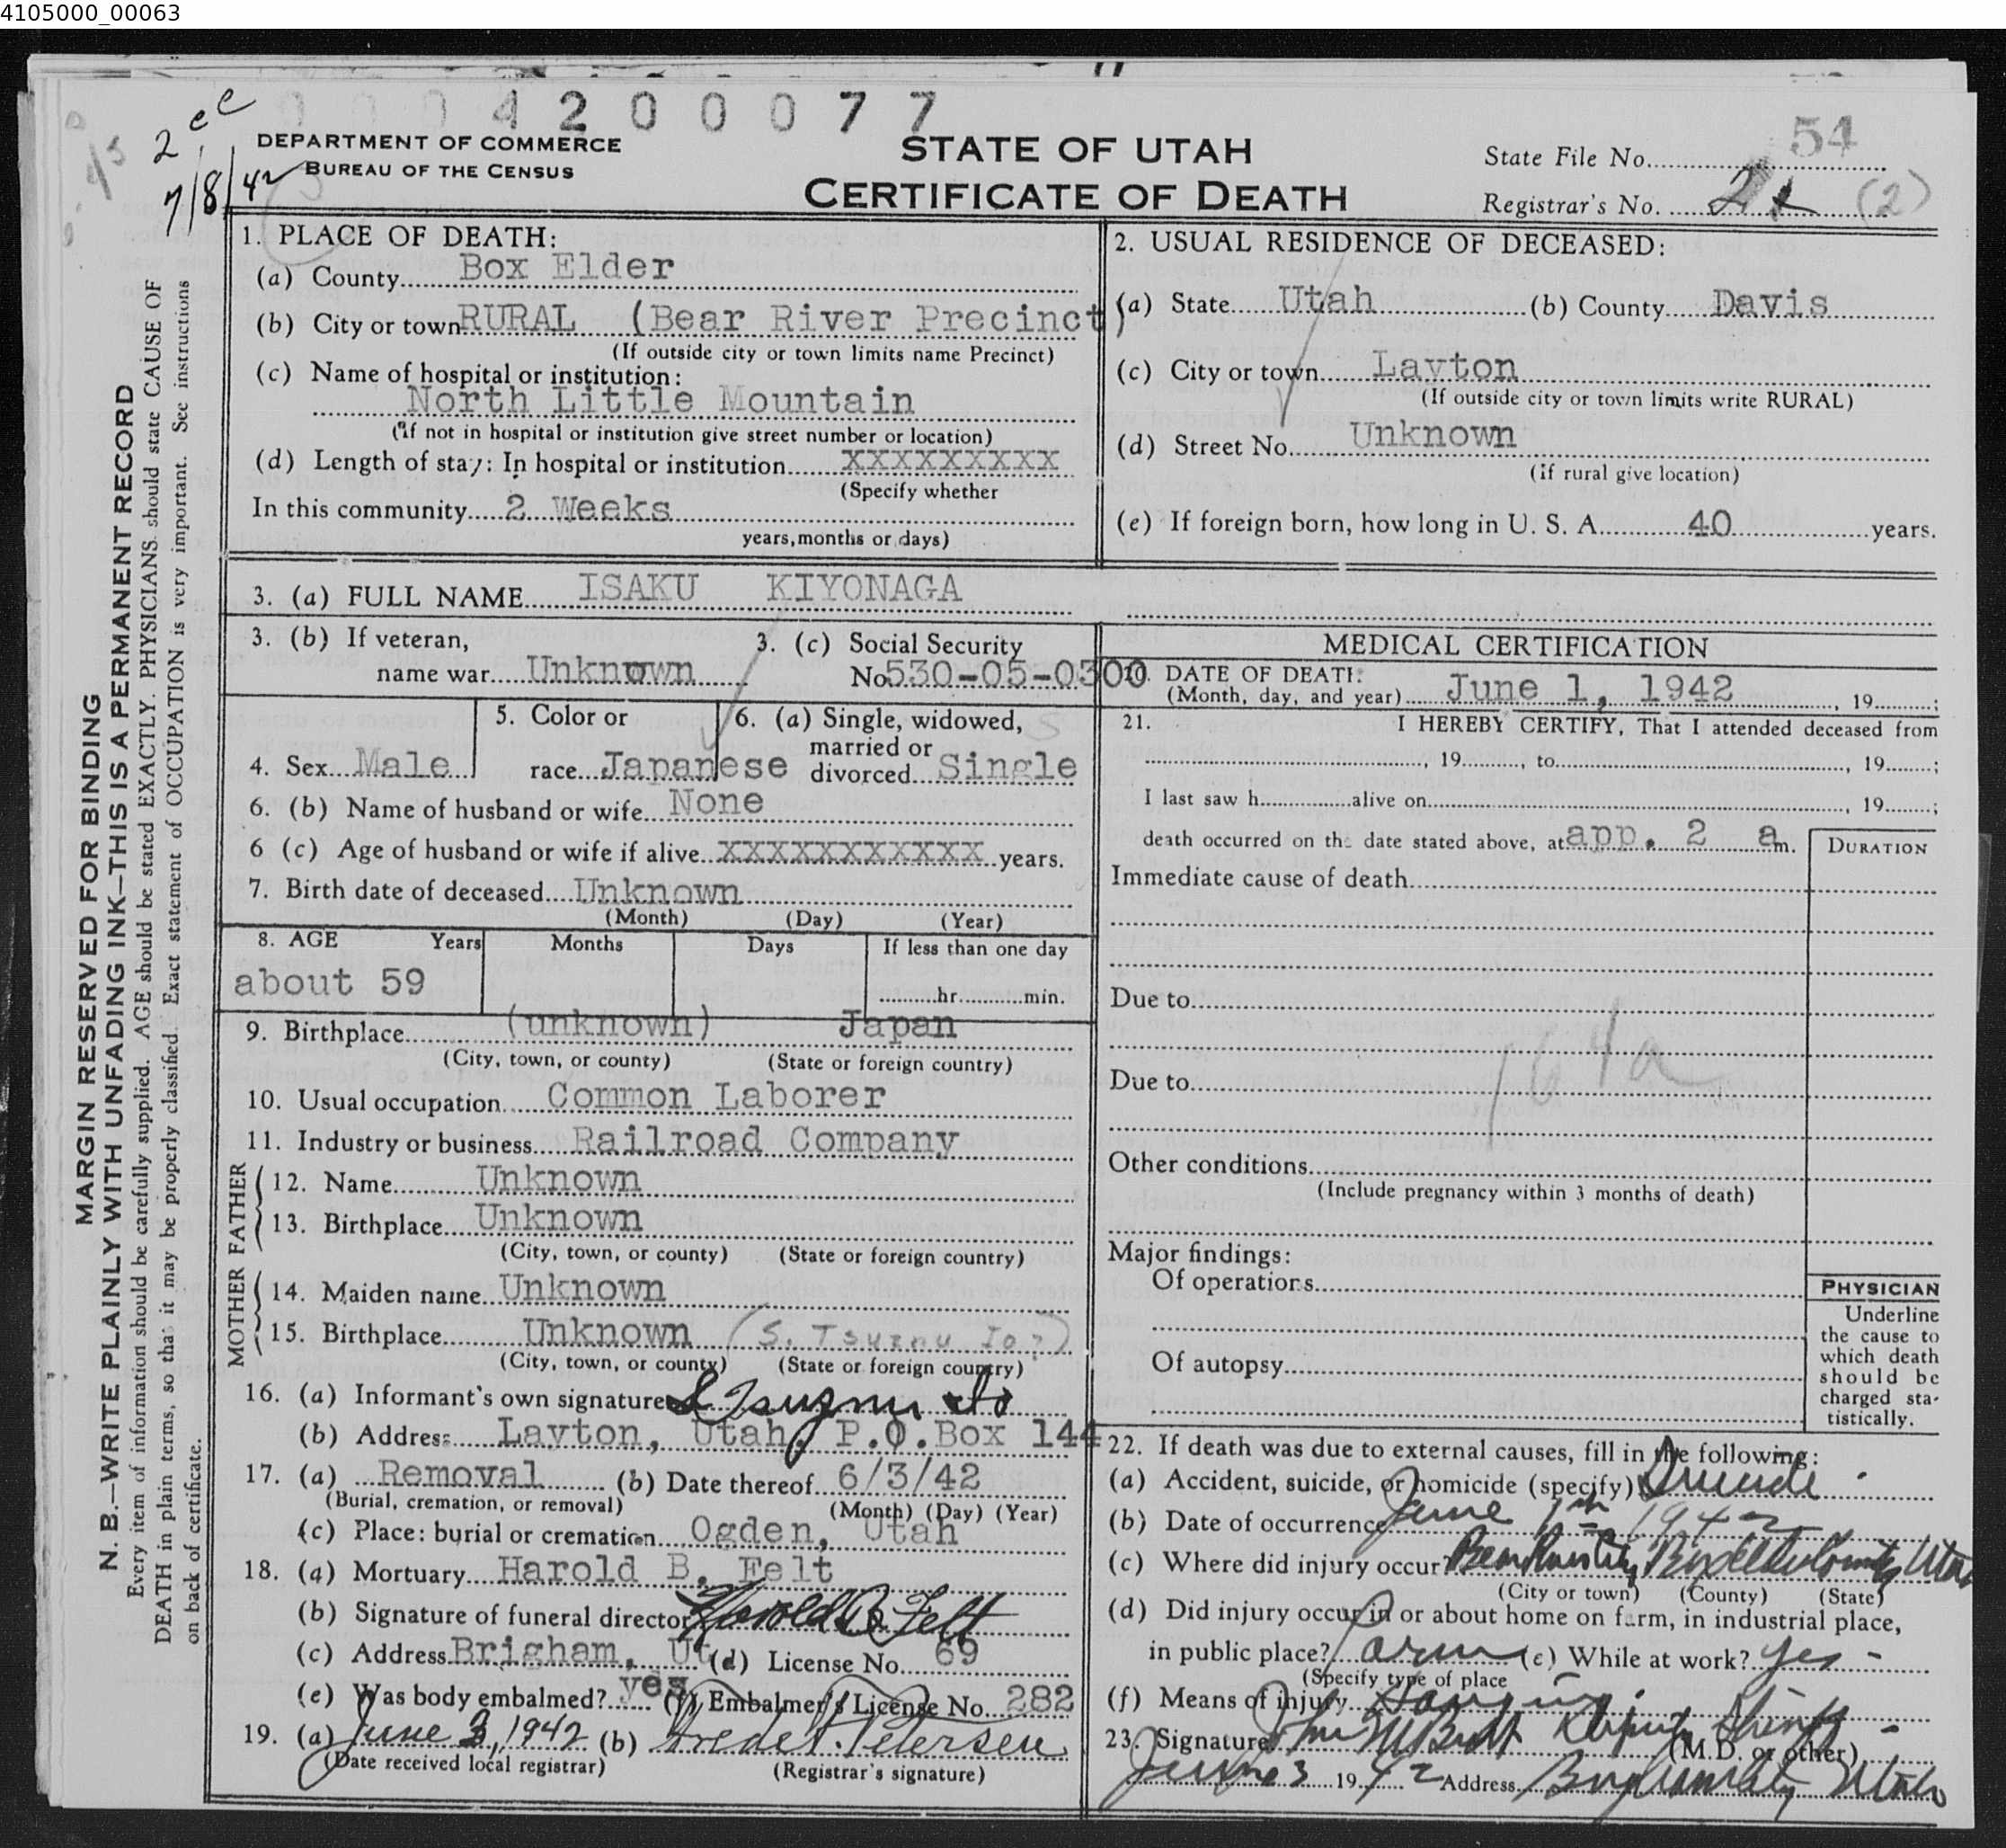 4105000_00063
0004200077
2 cc
7/8/42
DEPARTMENT OF COMMERCE
BUREAU OF THE CENSUS
STATE OF UTAH
CERTIFICATE OF DEATH
54
State File No.
Registrar's No. (2)
MARGIN RESERVED FOR BINDING
N. B.—WRITE PLAINLY WITH UNFADING INK—THIS IS A PERMANENT RECORD
Every item of information should be carefully supplied. AGE should be stated EXACTLY. PHYSICIANS should state CAUSE OF
DEATH in plain terms, so that it may be properly classified. Exact statement of OCCUPATION is very important. See instructions
on back of certificate.
1. PLACE OF DEATH:
(a) County Box Elder
(b) City or town RURAL (Bear River Precinct)
(If outside city or town limits name Precinct)
(c) Name of hospital or institution:
North Little Mountain
(If not in hospital or institution give street number or location)
(d) Length of stay: In hospital or institution XXXXXXXXX
(Specify whether
In this community 2 Weeks
years, months or days)
2. USUAL RESIDENCE OF DECEASED:
(a) State Utah (b) County Davis
(c) City or town Layton
(If outside city or town limits write RURAL)
(d) Street No. Unknown
(If rural give location)
(e) If foreign born, how long in U. S. A. 40 years.
3. (a) FULL NAME ISAKU KIYONAGA
3. (b) If veteran,
name war Unknown
3. (c) Social Security
No. 530-05-0300
4. Sex Male
5. Color or
race Japanese
6. (a) Single, widowed,
married or
divorced Single
6. (b) Name of husband or wife None
6 (c) Age of husband or wife if alive XXXXXXXXXXX years.
7. Birth date of deceased Unknown
(Month) (Day) (Year)
8. AGE Years Months Days If less than one day
about 59 hr. min.
9. Birthplace (unknown) Japan
(City, town, or county) (State or foreign country)
10. Usual occupation Common Laborer
11. Industry or business Railroad Company
FATHER
12. Name Unknown
13. Birthplace Unknown
(City, town, or county) (State or foreign country)
MOTHER
14. Maiden name Unknown
15. Birthplace Unknown (S. Tsuznu Io?)
(City, town, or county) (State or foreign country)
16. (a) Informant's own signature
(b) Address Layton, Utah, P.O.Box 144
17. (a) Removal (b) Date thereof 6/3/42
(Burial, cremation, or removal) (Month) (Day) (Year)
(c) Place: burial or cremation Ogden, Utah
18. (a) Mortuary Harold B. Felt
(b) Signature of funeral director Harold B Felt
(c) Address Brigham, Ut (d) License No. 69
(e) Was body embalmed? yes (f) Embalmer's License No. 282
19. (a) June 3, 1942 (b) Petersen
(Date received local registrar) (Registrar's signature)
MEDICAL CERTIFICATION
20. DATE OF DEATH:
(Month, day, and year) June 1, 1942, 19 ;
21. I HEREBY CERTIFY, That I attended deceased from
, 19 , to , 19 ;
I last saw h alive on , 19 ;
death occurred on the date stated above, at app. 2 a m.
DURATION
Immediate cause of death
Due to
164a
Due to
Other conditions
(Include pregnancy within 3 months of death)
Major findings:
Of operations
Of autopsy
PHYSICIAN
Underline
the cause to
which death
should be
charged sta-
tistically.
22. If death was due to external causes, fill in the following:
(a) Accident, suicide, or homicide (specify) Suicide
(b) Date of occurrence June 1st 1942
(c) Where did injury occur? Bear River City Box Elder County Utah
(City or town) (County) (State)
(d) Did injury occur in or about home on farm, in industrial place,
in public place? Farm (e) While at work? Yes
(Specify type of place
(f) Means of injury Hanging
23. Signature Deputy Sheriff
(M.D. or other)
June 3 1942 Address Brigham City Utah